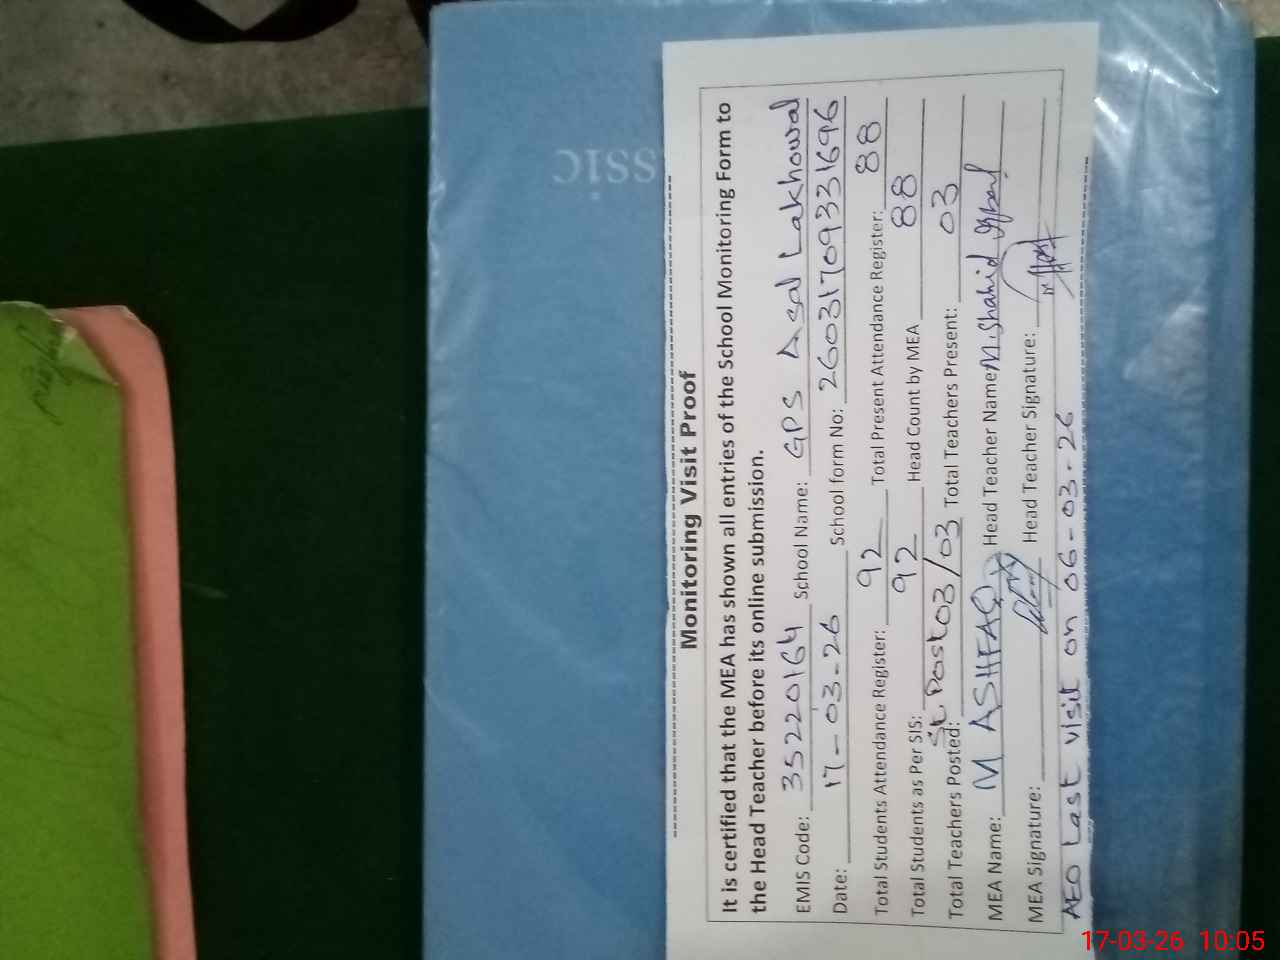 ssic
Monitoring Visit Proof
It is certified that the MEA has shown all entries of the School Monitoring Form to
the Head Teacher before its online submission.
EMIS Code: 35220164 School Name: GPS Asal Lakhowal
Date: 17-03-26 School form No: 26031709331696
Total Students Attendance Register: 92 Total Present Attendance Register: 88
Total Students as Per SIS: 92 Head Count by MEA 88
Total Teachers Posted: St. Post 03/03 Total Teachers Present: 03
MEA Name: M ASHFAQ Head Teacher Name M. Shahid Iqbal
MEA Signature: Head Teacher Signature:
AEO Last visit on 06-03-26
17-03-26 10:05